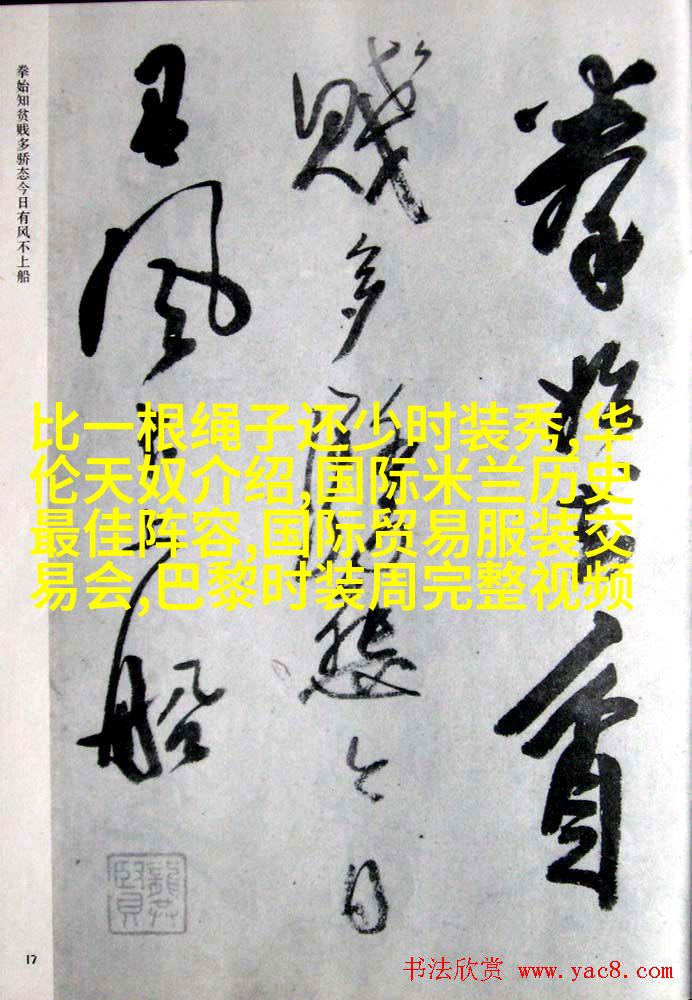 拳始知貧
賤多驕態今日
有風不上船
拳始知贫贱多骄态今日有风不上船
比一根绳子还少时装秀,华
伦天奴介绍,国际米兰历史
最佳阵容,国际贸易服装交
易会,巴黎时装周完整视频
17
书法欣赏 www.yac8.com